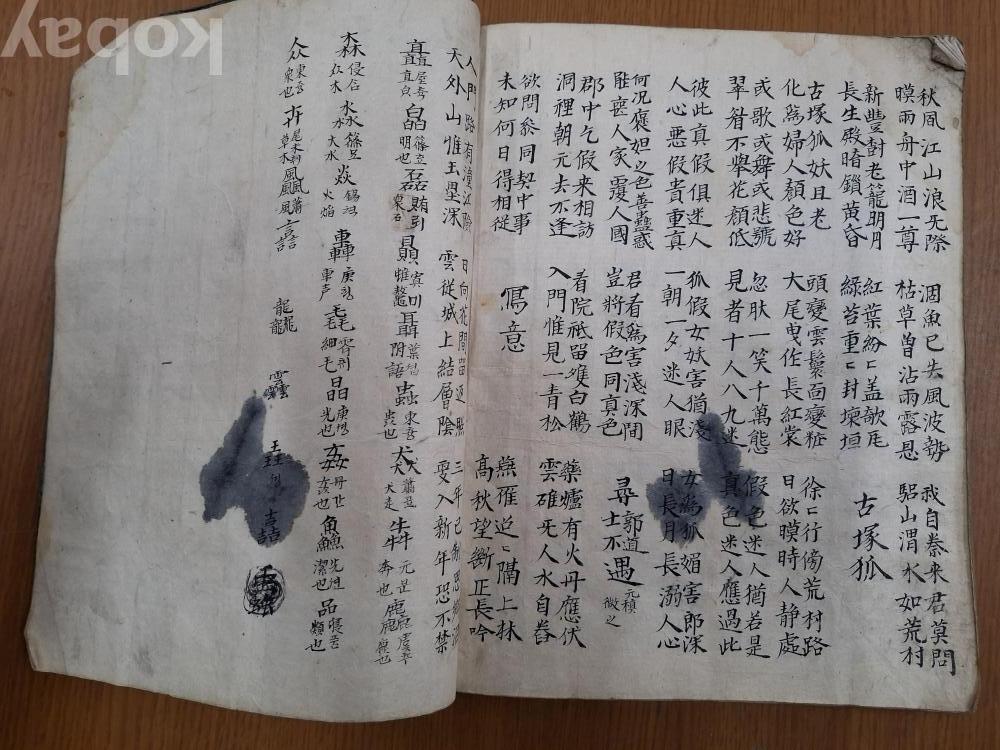 秋風江山浪无際
暝雨舟中酒一尊
涸魚已失風波勢
枯草曾沾雨露恩
我自秦來君莫問
驪山渭水如荒村
新豐尌老籠明月
長生殿暗鎖黃昏
紅葉紛〻盖欹瓦
綠苔重〻封壞垣
古塚狐
古塚狐妖且老
化為婦人顏色好
頭變雲鬟面變粧
大尾曳作長紅裳
徐〻行傍荒村路
日欲暝時人静處
或歌或舞或悲號
翠眉不舉花顏低
忽肰一笑千萬態
見者十人八九迷
假色迷人猶若是
真色迷人應過此
彼此真假俱迷人
人心惡假貴重真
狐假女妖害猶淺
一朝一夕迷人眼
女為狐媚害即深
日長月長溺人心
何況褒妲之色善蠱惑
能喪人家覆人國
君看為害淺深間
豈將假色同真色
尋郭道士不遇 元稹 微之
郡中乞假來相訪
洞裡朝元去不逢
看院祇留雙白鶴
入門惟見一青松
藥爐有火丹應伏
雲碓无人水自舂
欲問參同契中事
未知何日得相從
寫意
燕雁迢〻隔上林
高秋望斷正長吟
人間路有潼江險
天外山惟玉壘深
日向花間留返照
雲從城上結層陰
三年已制思鄉淚
更入新年恐不禁
矗 直 皛 明也 磊 贔 聶 葉섭 附語 蟲 東충 猋 犬走 犇 奔也 麤
森 侵 众木 淼 大水 焱 火焰 轟 庚 車声 毳 細毛 晶 庚 光也 姦 鱻 潔也 品 類也
众 東 衆也 卉 尾 草木 飍 風 譶
龘
靐
kobay